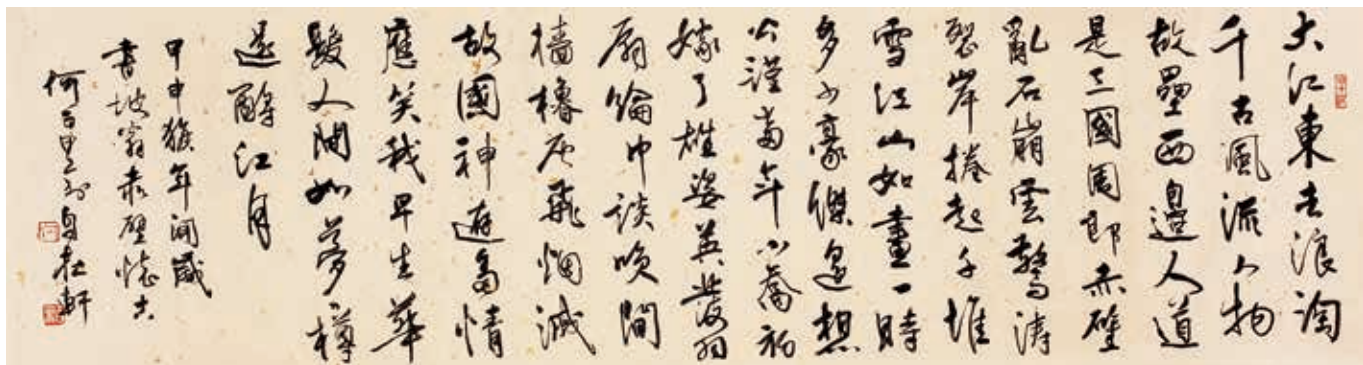 大江東去浪淘
千古風流人物
故壘西邊人道
是三國周郎赤壁
亂石崩雲驚濤
裂岸捲起千堆
雪江山如畫一時
多少豪傑遙想
公瑾當年小喬初
嫁了雄姿英發羽
扇綸巾談咲間
檣櫓灰飛烟滅
故國神遊多情
應笑我早生華
髮人間如夢樽
還酹江月
甲申猴年閏歲
書坡翁赤壁懷古
何百里於自在軒